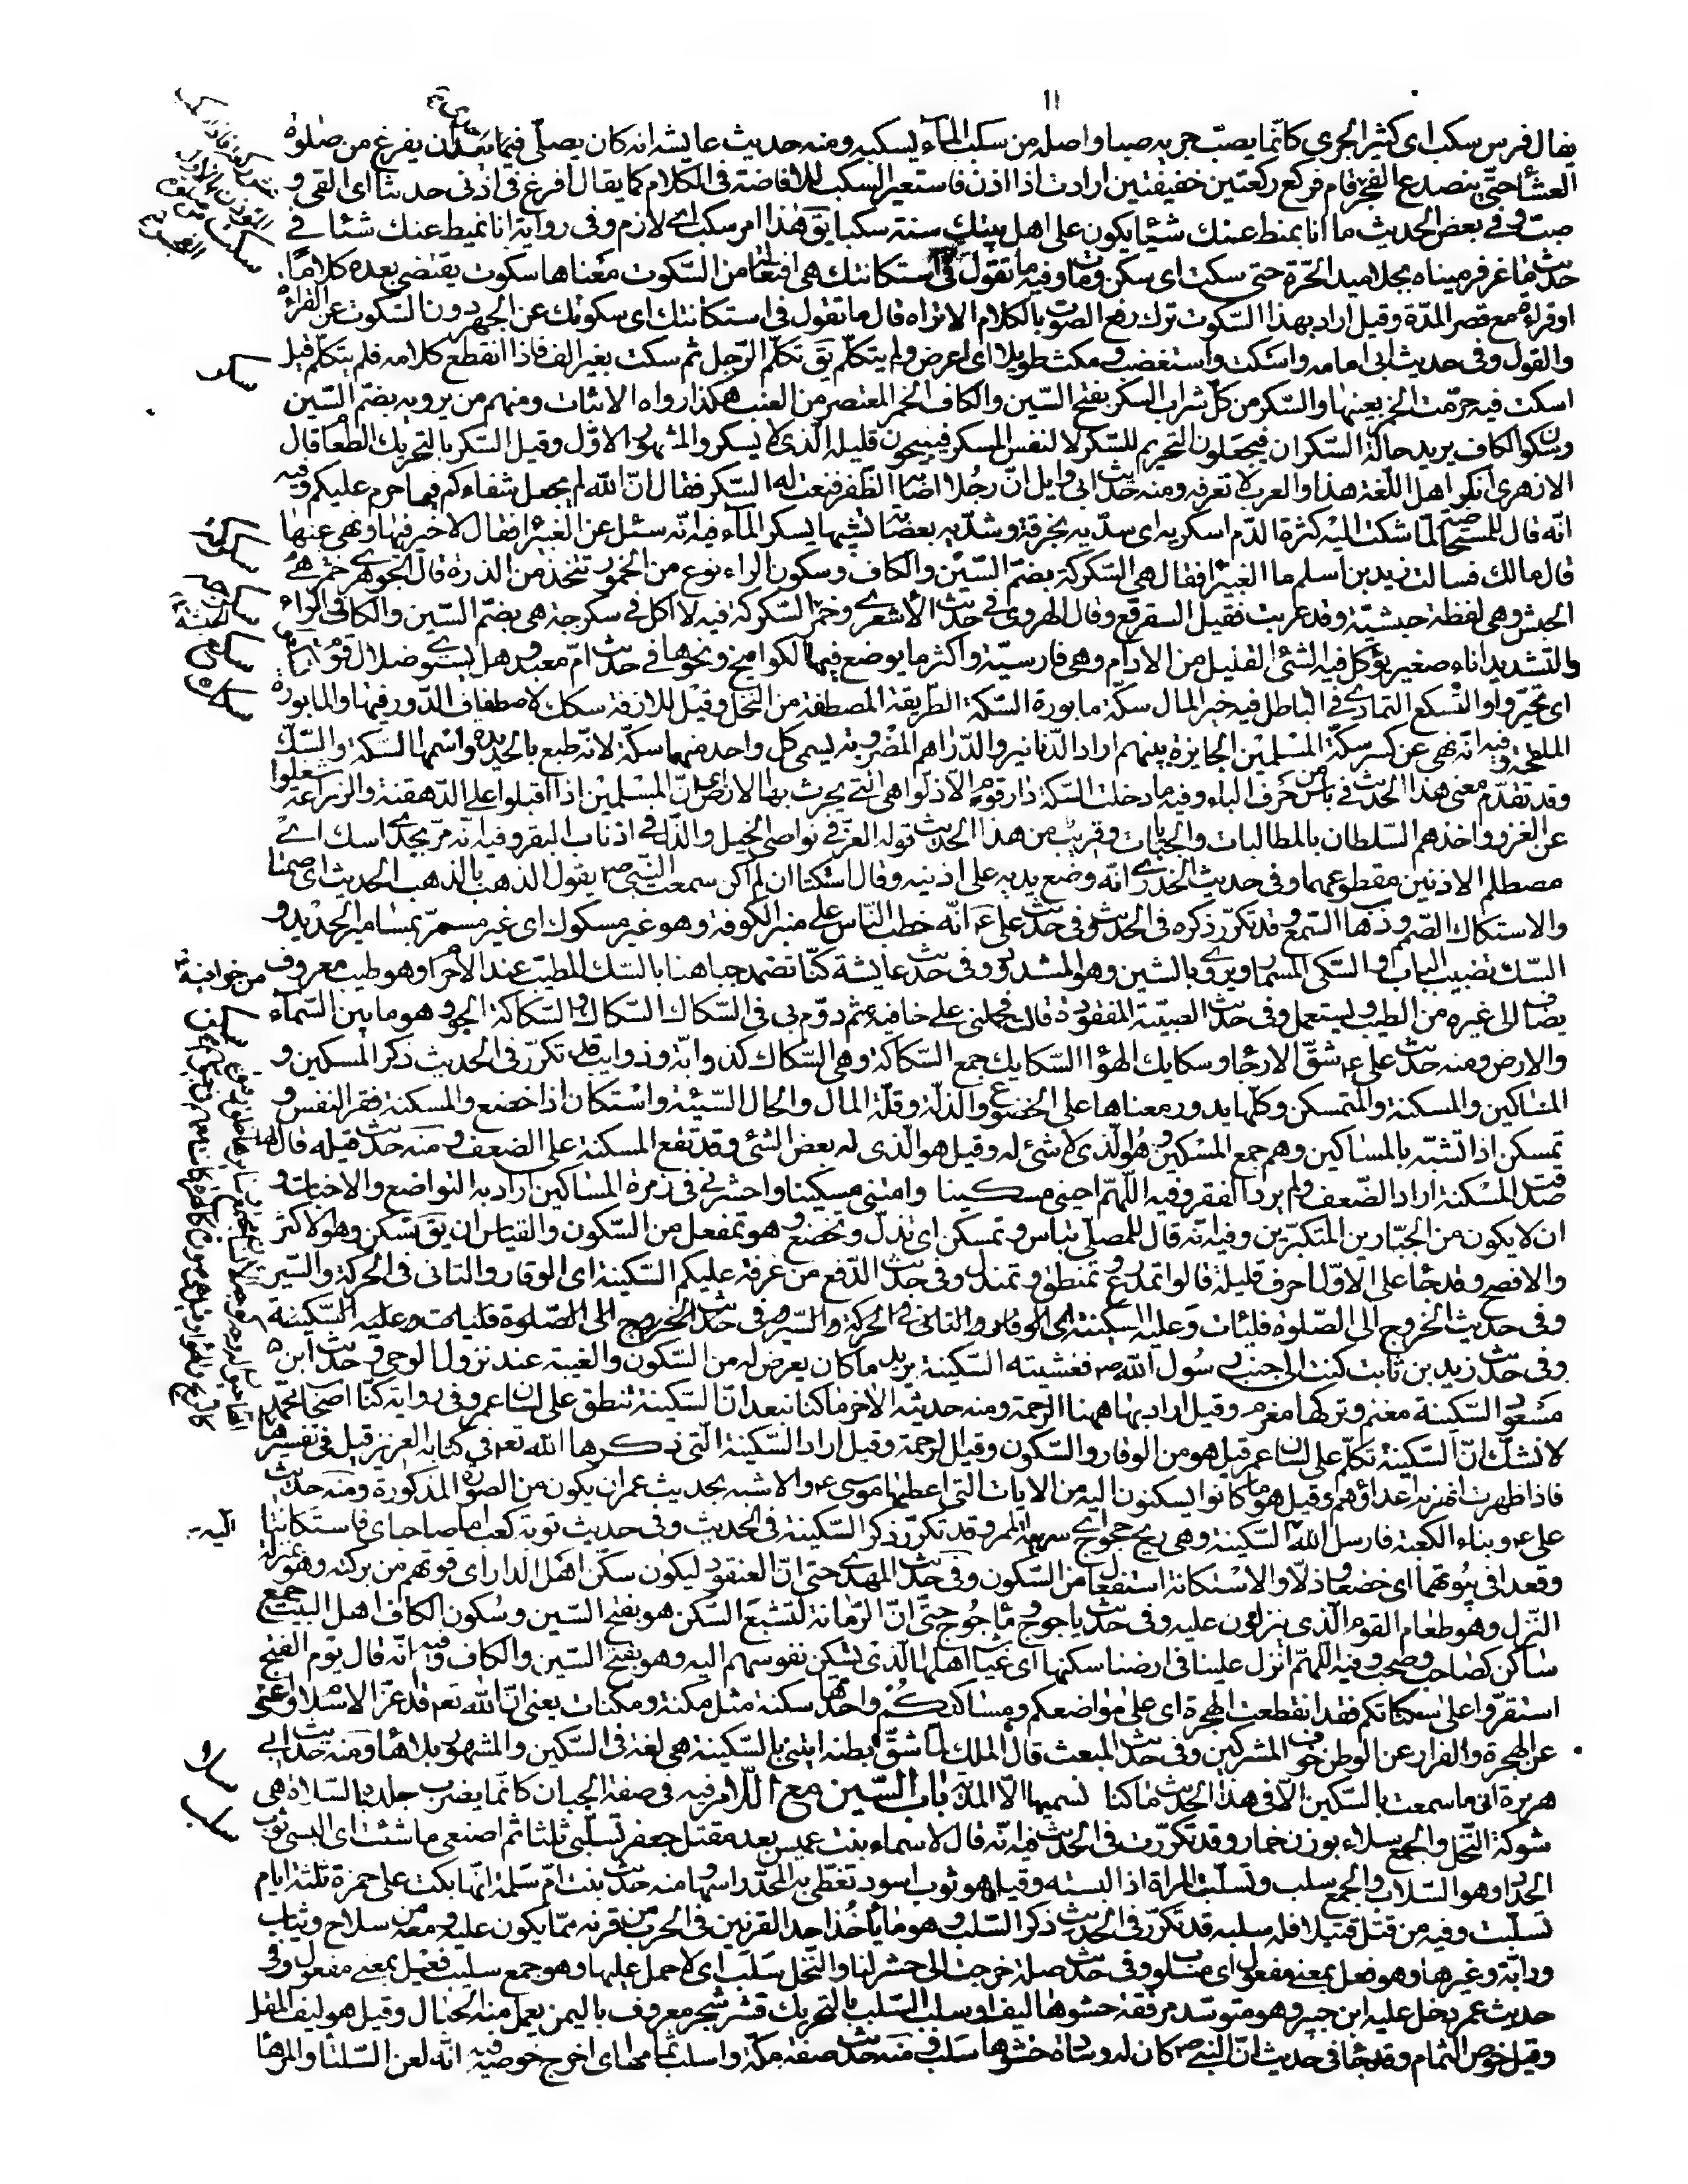 ١١
يقال فرس سكب اى كثير الجرى كانّما يصبّ جريه صبا واصله من سكب المآء يسكبه ومنه حديث عايشه انه كان يصلّى فيما بين العشا
حتّى ينصدع الفجر قام فركع ركعتين خفيفتين ارادت اذا اذن فاستعير السكب للافاضة فى الكلام كما يقال افرغ فى اذنى حديثا اى القى و
صبّ وفى بعض الحديث ما انا بمنط عنك شيئا يكون على اهل بيتك سنة سكبا يق هذا امر سكب اى لازم وفى رواية انا نميط عنك شئا فى
حديث ماعز فرميناه بجلاميد الحرّة حتى سكت اى سكن ومات وفيه ما تقول فى اسكاتتك هى افتعالة من السّكوت معناها سكوت يقتضى بعده كلاما
او قراءة مع قصر المدّة وقيل اراد بهذا السّكوت ترك رفع الصوت بالكلام الا تراه قال ما تقول فى اسكاتتك اى سكوتك عن الجهر دون السّكوت عن القراءة
والقول وفى حديث ابى امامه واسكت واستغضب ومكث طويلا اى اعرض ولم يتكلّم يق تكلّم الرّجل ثم سكت بغير الف فاذا انقطع كلامه فلم يتكلّم قيل
اسكت فيه حرّمت الخمر بعينها والسّكر من كلّ شراب السكر بفتح السّين والكاف الخمر المعتصر من العنب هكذا رواه الاثبات ومنهم من يرويه بضمّ السّين
وسكون الكاف يريد حالة السّكران فيجعلون التحريم للسّكر لا لنفس المسكر فيبيحون قليله الّذى لا يسكر والمشهور الاوّل وقيل السّكر بالتحريك الطعام قال
الازهرى انكر اهل اللّغة هذا والعرب لا تعرفه ومنه حديث ابى وايل انّ رجلا اصابه الظفر فبعث له السّكر فقال انّ الله لم يجعل شفاءكم فيما حرم عليكم وفيه
انّه قال للمستحاضة لما شكت اليه كثرة الدّم اسكريه اى سدّيه بخرقة وشدّيه بعصابة تشبيها بسكر المآء فيه انّه سئل عن الغبيرا فقال لا خير فيها ونهى عنها
قال مالك فسالت زيد بن اسلم ما الغبيرا فقال هى السّكركة بضمّ السّين والكاف وسكون الراء نوع من الخمور تتخذ من الذرة قال الجوهرى خمر
الحبش وهى لفظة حبشيّة وقد عربت فقيل السقرقع وقال الهروى فى حديث الاشعرى وخمر السّكركة فيه لا اكل فى سكرجة هى بضمّ السّين والكاف والراء
والتشديد اناء صغير يؤكل فيه الشئ القليل من الادام وهى فارسيّة واكثر ما يوضع فيها الكواميخ ونحوها فى حديث امّ معبد وهل يستوى ضلال قوم تسكعوا
اى تحيّروا والتسكع التمادى فى الباطل فيه خير المال سكّة مابورة السّكة الطّريقة المصطفة من النخل وقيل للازقة سكك لاصطفاف الدّور فيها والمابورة
الملقحة وفيه انّه نهى عن كسر سكّة المسلمين الجايزة بينهم اراد الدّنانير والدّراهم المضروبة يسمى كل واحد منهما سكّة لانّه طبع بالحديدة واسمها السّكة والسّكّ
وقد تقدّم معنى هذا الحديث فى باس من حرف الباء وفيه ما دخلت السّكة دار قوم الا ذلّوا هى الّتى يحرث بها الارض اى انّ المسلمين اذا اقبلوا على الدّهقنة والزراعة شغلوا
عن الغزو واخذهم السّلطان بالمطالبات والجبايات وقريب من هذا الحديث قوله العزّ فى نواصى الخيل والذّلّ فى اذناب البقر وفيه انّه مرّ بجدى اسك اى
مصطلم الاذنين مقطوعهما وفى حديث الخدرى انّه وضع يديه على اذنيه وقال استكتا ان لم اكن سمعت النّبى ص يقول الذهب بالذهب الحديث اى صمتا
والاستكاك الصّمم وذهاب السّمع وقد تكرّر ذكره فى الحديث وفى حديث على ع انّه خطب النّاس على منبر الكوفة وهو غير مسكوك اى غير مسمرّ بمسامير الحديد و
السّك تضبيب الباب والسّكى المسمار ويروى بالشين وهو المشدود وفى حديث عايشة كنّا نضمد جباهنا بالسّك المطيّب عند الاحرام وهو طيب معروف
يضاف الى غيره من الطيب ويستعمل وفى حديث الصّبيّة المفقودة قالت فحملنى على خافية ثم دوّم بى فى السّكاك السّكاك والسّكاكة الجوّ وهو ما بين السّماء
والارض ومنه حديث على ع شقّ الارجاء وسكايك الهواء السّكايك جمع السّكاكة وهى السّكاك كذوابة وذوايب قد تكرّر فى الحديث ذكر المسكين و
المساكين والمسكنة والتمسكن وكلّها يدور معناها على الخضوع والذلّة وقلّة المال والحال السّيّئة واستكان اذا خضع والمسكنة فقر النفس و
تمسكن اذا تشبّه بالمساكين وهم جمع المسكين وهو الّذى لا شئ له وقيل هو الّذى له بعض الشئ وقد تقع المسكنة على الضعف ومنه حديث قيلة قال لها
صدقت المسكنة اراد الضّعف ولم يرد الفقر وفيه اللّهمّ احينى مسكينا وامتنى مسكينا واحشرنى فى زمرة المساكين اراد به التواضع والاخبات و
ان لا يكون من الجبّارين المتكبّرين وفيه انّه قال للمصلّى تباس وتمسكن اى تذلّل وتخضع وهو تمفعل من السّكون والقياس ان يق تسكن وهو الاكثر
والافصح وقد جا على الاوّل احرف قليلة قالوا تمدرع وتمنطق وتمندل وفى حديث الدّفع من عرفة عليكم السّكينة اى الوقار والتانى فى الحركة والسّير
وفى حديث الخروج الى الصّلوة فليات وعليه السكينة اى الوقار والتانى فى الحركة والسّير وفى حديث الخروج الى الصّلوة فليات وعليه السّكينة
وفى حديث زيد بن ثابت كنت الى جنب رسول الله ص فغشيته السّكينة يريد ما كان يعرض له من السّكون والغيبة عند نزول الوحى وحديث ابن
مسعود السّكينة مغنم وتركها مغرم وقيل اراد بها ههنا الرحمة ومنه حديثه الاخر ما كنا نبعد انّ السّكينة تنطق على لسان عمر وفى رواية كنّا اصحاب محمّد
لا نشكّ انّ السّكينة تكلّم على لسان عمر قيل هو من الوقار والسّكون وقيل الرحمة وقيل اراد السّكينة الّتى ذكرها الله تع فى كتابه العزيز قيل فى تفسيرها
فاذا ظهرت انهزم اعداؤهم وقيل هو ما كانوا يسكنون اليه من الايات التى اعطيها موسى ع والاشبه بحديث عمر ان يكون من الصّورة المذكورة ومنه حديث
على ع وبناء الكعبة فارسل الله السّكينة وهى ريح خجوج اى سريعة الممر وقد تكرّر ذكر السّكينة فى الحديث وفى حديث توبة كعب اما صاحباى فاستكانا
وقعدا فى بيوتهما اى خضعا وذلّا والاستكانة استفعال من السّكون وفى حديث المهدى حتى انّ العنقود ليكون سكن اهل الدار اى قوتهم من بركته وهو بمنزلة
النّزل وهو طعام القوم الّذى ينزلون عليه وفى حديث ياجوج وماجوج حتّى انّ الرّمّانة لتشبع السّكن هو بفتح السّين وسكون الكاف اهل البيت جمع
ساكن كصاحب وصحب وفيه اللّهمّ انزل علينا فى ارضنا سكنها اى غياث اهلها الّذى تسكن نفوسهم اليه وهو بفتح السّين والكاف وفيه انّه قال يوم الفتح
استقرّوا على سكناتكم فقد انقطعت الهجرة اى على مواضعكم ومساكنكم واحدها سكنة مثل مكنة ومكنات يعنى انّ الله تع قد اعزّ الاسلام واغنى
عن الهجرة والفرار عن الوطن خوف المشركين وفى حديث المبعث قال الملك لما شقّ بطنه ايتنى بالسّكينة هى لغة فى السّكين والمشهور بلا هاء ومنه حديث ابى
هريرة ان ما سمعت بالسّكين الّا فى هذا الحديث ما كنا نسميها الّا المدية باب السّين مع اللّام فيه فى صفة الجبان كانّما يضرب جلده بالسّلاءة هى
شوكة النّخل والجمع سلاء بوزن خمار وقد تكرّرت فى الحديث فيه انّه قال لاسماء بنت عميس بعد مقتل جعفر تسلّبى ثلثا ثم اصنعى ما شئت اى البسى ثوب
الحداد وهو السّلاب والجمع سلب وتسلّبت المراة اذا لبسته وقيل هو ثوب اسود تغطّى به المحدّ راسها ومنه حديث بنت امّ سلمة انّها بكت على حمزة ثلثة ايام
تسلّبت وفيه من قتل قتيلا فله سلبه قد تكرّر فى الحديث ذكر السّلب وهو ما ياخذ احد القرنين فى الحرب من قرنه ممّا يكون عليه ومعه من سلاح وثياب
ودابّة وغيرها وهو فعل بمعنى مفعول اى مسلوب وفى حديث صلة خرجت الى حشر لنا والنّخل سلب اى لا حمل عليها وهو جمع سليب فعيل بمعنى مفعول وفى
حديث عمر دخل عليه ابن جبير وهو متوسّد مرفقة حشوها ليف او سلب السّلب بالتحريك قشر شجر معروف باليمن يعمل منه الحبال وقيل هو ليف المقل
وقيل خوص الثمام وقد جا فى حديث انّ النبى ص كان له وسادة حشوها سلب ومنه حديث صفة مكّة واسلب ثمامها اى اخرج خوصه فيه انّه لعن السّلتاء والمرهاء